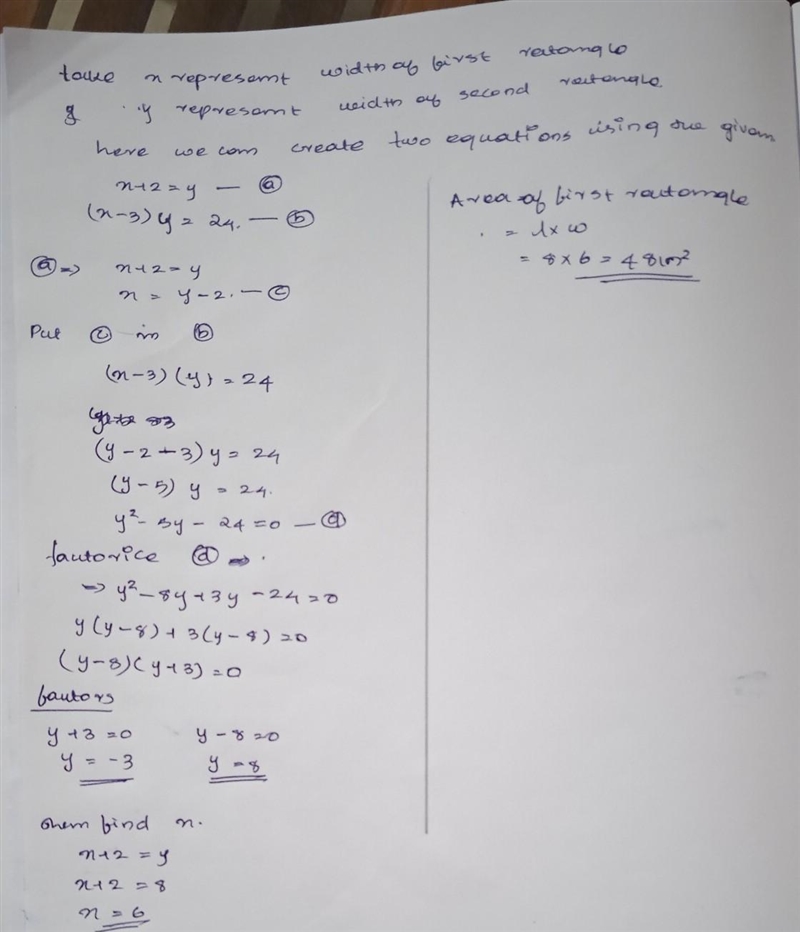 take x represent width of first rectangle
& y represent width of second rectangle
here we can create two equations using the given
x+2=y — ⓐ
(x-3)y = 24. — ⓑ
ⓐ=> x+2=y
x = y-2. — ⓒ
Put ⓒ in ⓑ
(x-3)(y) = 24
(y-2-3)y = 24
(y-5) y = 24.
y²-5y-24=0 — ⓓ
factorice ⓓ =>.
=> y²-8y+3y-24=0
y(y-8)+3(y-8)=0
(y-8)(y+3)=0
factors
y+3=0 y-8=0
y = -3 y = 8
then find x.
x+2=y
x+2=8
x = 6
Area of first rectangle
= l×w
= 8×6 = 48cm²